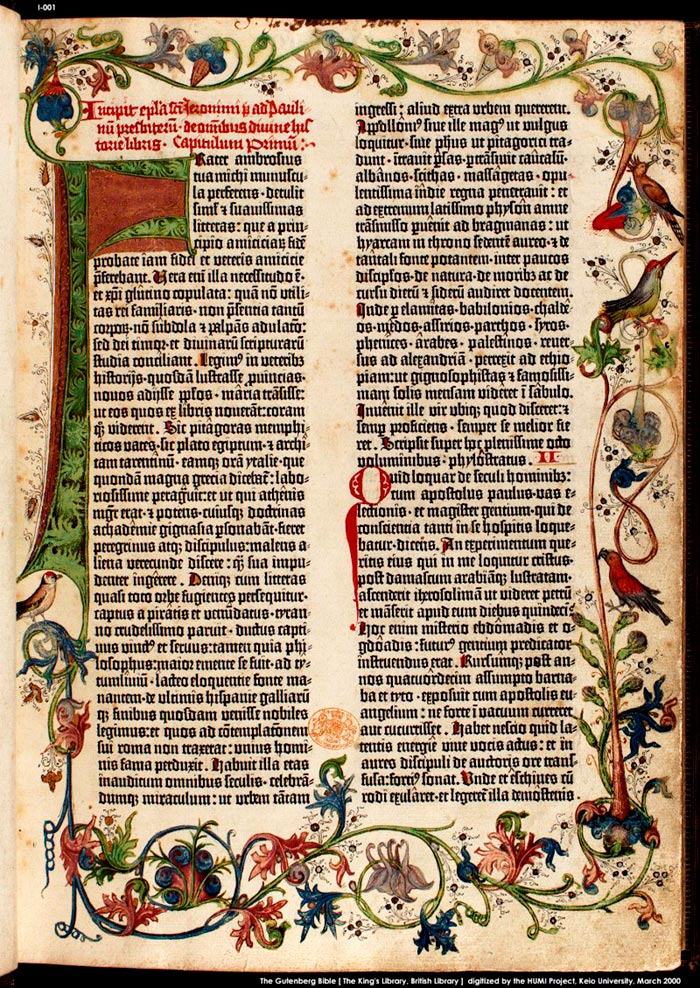 I-001
Incipit epl̃a sc̃i Jeronimi p̃ ad Pauli-
nũ presbiterũ de omnibus divine his-
torie libris. Capitulum Primũ:
Frater ambrosius
tua michi munuscu-
la perferens. detulit
siml̃ et suavissimas
litteras: que a prin-
cipio amiciciarũ fidẽ
probate iam fidei et veteris amicicie
p̃ferebant. Vera enĩ illa necessitudo ẽ.
et xp̃i glutino copulata: quam nõ utili-
tas rei familiaris. non p̃sentia tantũ
corporũ. nõ subdola et palpãs adulacõ:
sed dei timor. et divinarũ scripturarũ
studia conciliant. Legimꝰ in veteribꝫ
historijs. quosdã lustrasse ꝓvincias.
novos adijsse pp̃los. maria trãsisse:
ut eos quos ex libris noverãt: coram
qꝫ viderent. Sic pitagoras memphi-
ticos vates. sic plato egiptum. et archi-
tam tarentinũ. eamqꝫ orã ytalie. que
quondã magna grecia dicebat̃: labo-
riosissime peragravit: et ut qui athenis
mgr̃ erat. et potens. cuiusqꝫ doctrinas
achademie gignasia ꝑsonabãt. fieret
peregrinus atqꝫ discipulus: malens a-
liena verecunde discere: qꝫ sua impu-
denter ingerere. Deniqꝫ cum litteras
quasi toto orbe fugientes persequitur.
captus a piratis et venũdatus. tyran-
no crudelissimo paruit. ductus capti-
vus vinctꝰ et servus: tamen quia phi-
losophus: maior emente se fuit. ad ty-
tumliviũ. lacteo eloquentie fonte ma-
nantem. de ultimis hispanie galliarũ
qꝫ finibus quosdam venisse nobiles
legimus: et quos ad cõtemplacionem
sui roma non traxerat: unius homi-
nis fama perduxit. Habuit illa etas
inauditum omnibus seculis. celebrã-
dumqꝫ miraculum: ut urbem tãtam
ingressi: aliud extra urbem quererent.
Apollonius sive ille magꝰ ut vulgus
loquitur. sive ph̃us ut pitagorici tra-
dunt. ĩtravit ꝑsas. ꝑtrãsivit caucasũ.
albãnos. scithas. massagetas. opu-
lentissima indie regna penetravit: et
ad extremum latissimo physon amne
trãsmisso ꝑvẽit ad bragmanas: ut
hyarcam in throno sedentẽ aureo. et de
tantali fonte potantem. inter paucos
discipl̃os. de natura. de moribꝫ ac de
cursu dierũ et siderũ audiret docentem.
Inde ꝑ elamitas. babilonios. chalde-
os. medos. assirios. parthos. syros.
phenices. arabes. palestinos. rever-
sus ad alexandriã. perrexit ad ethio-
piam: ut gignosophistas et famosissi-
mam solis mensam videret ĩ sabulo.
Invenit ille vir ubiqꝫ quod disceret: et
semp̃ proficiens. semper se melior fie-
ret. Scripsit super hoc plenissime octo
voluminibus. phylostratus. II
Quid loquar de seculi hominibꝫ:
cum apostolus paulus. vas e-
lectionis. et magister gentium. qui de
consciencia tanti in se hospitis loque-
batur. dicens. An experimentum que-
ritis eius qui in me loquitur cristus.
post damascum arabiãqꝫ lustratam.
ascenderit iherosolimã ut videret petrũ
et mãserit apud eum diebus quindeci.
Hoc enim misterio ebdõmadis et o-
gdoadis: futurꝰ gentium predicator
instruendus erat. Rursumqꝫ post an-
nos quatuordecim assumpto barna-
ba et tyto. exposuit cum apostolis eu-
angelium: ne forte ĩ vacuum curreret
aut cucurrisset. Habet nescio quid la-
tentis energie vive vocis actus: et in
aures discipuli de auctoris ore trans-
fusa: forciꝰ sonat. Unde et eschines cũ
rodi exularet. et legeret̃ illa demostenis.
The Gutenberg Bible [ The King's Library, British Library ] digitized by the HUMI Project, Keio University, March 2000